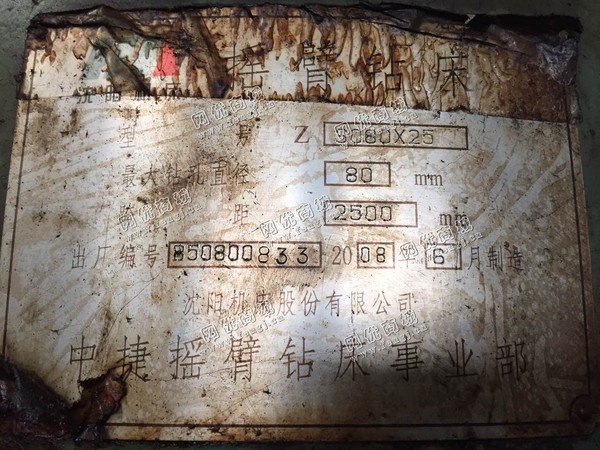 摇臂钻床
沈阳机床
型 号 Z 3080X25
最大钻孔直径 80 mm
跨 距 2500 mm
出厂编号 850800833 2008年 6 月制造
沈阳机床股份有限公司
中捷摇臂钻床事业部
网优商网